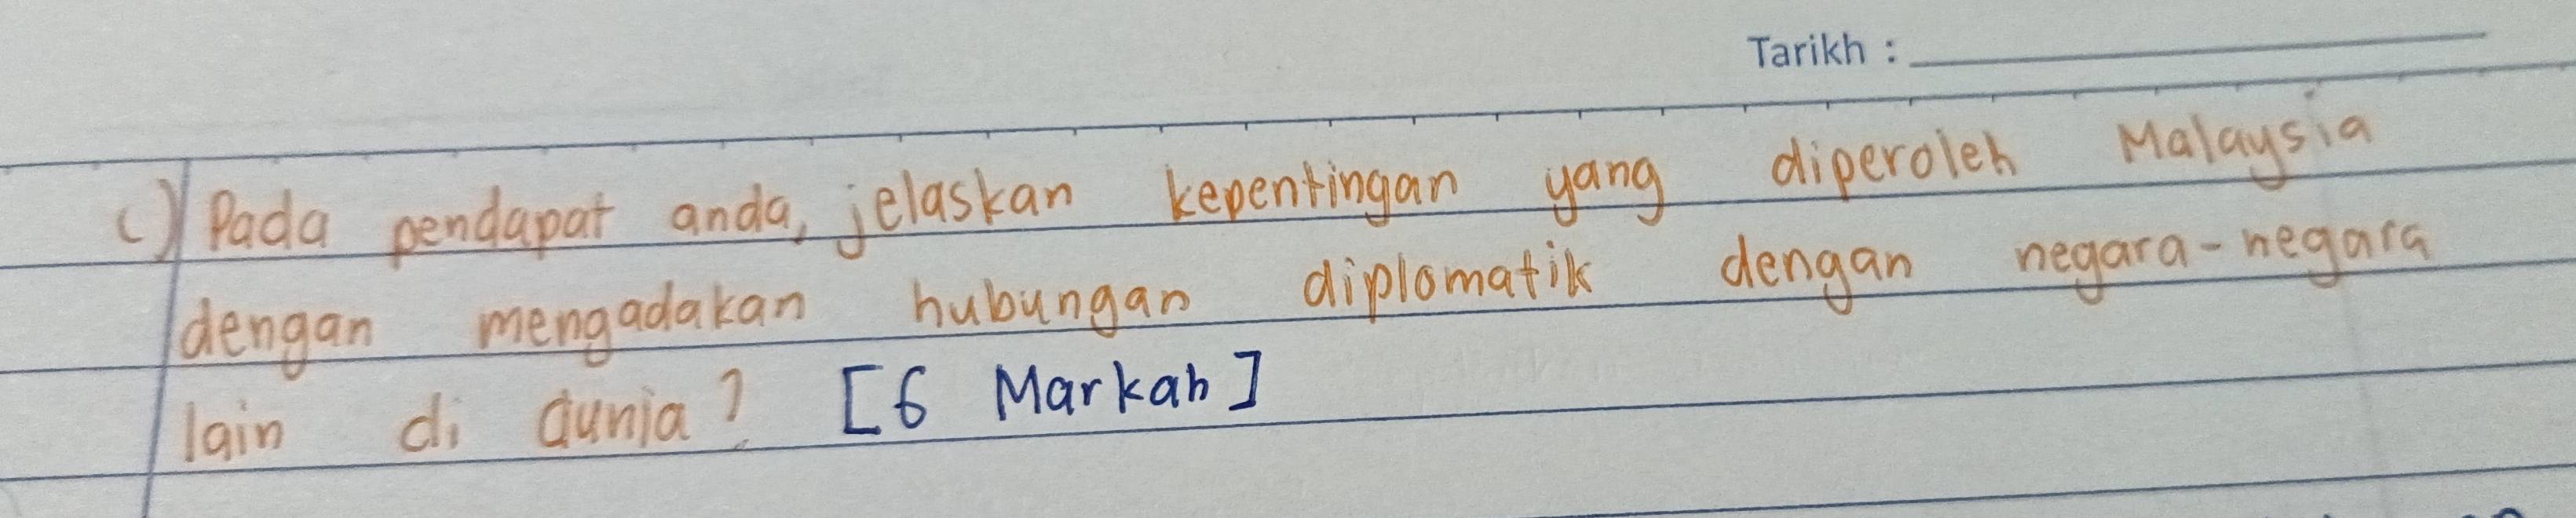 Tarikh :
c) Pada pendapat anda, jelaskan kepentingan yang diperoleh Malaysia
dengan mengadakan hubungan diplomatik dengan negara-negara
lain di dunia? [6 Markah]